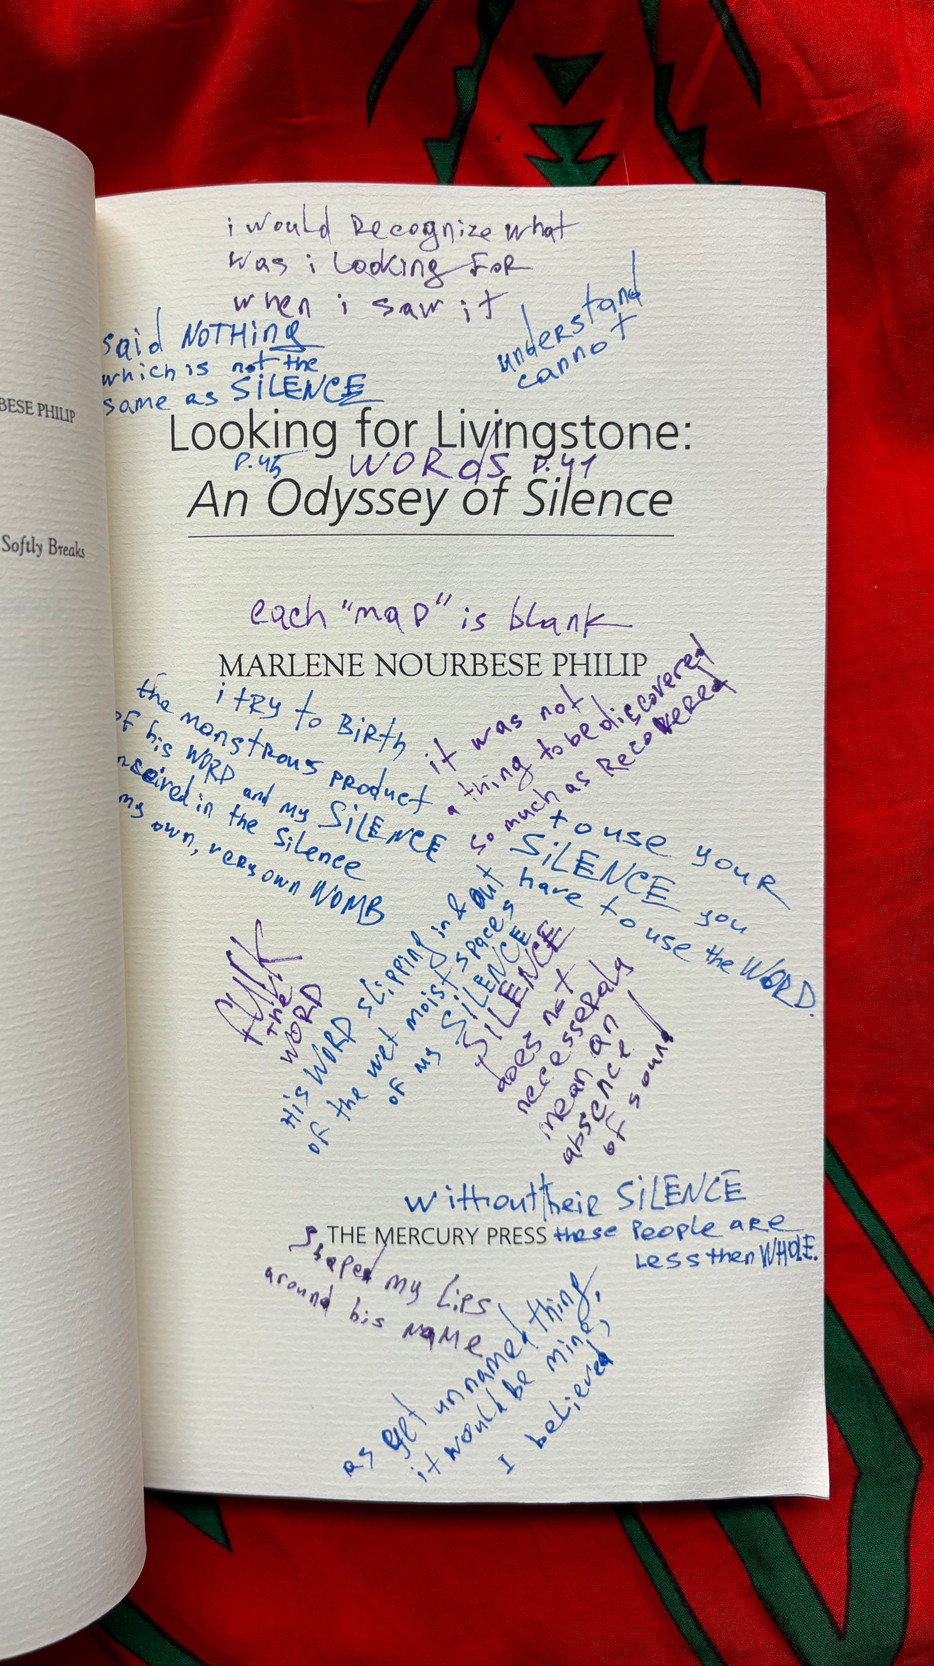 i would Recognize what
was i looking FOR
when i saw it
understand
cannot
said NOTHing
which is not the
same as SiLENCE
BESE PHILIP
Softly Breaks
Looking for Livingstone:
P.45 WORdS P.41
An Odyssey of Silence
each "map" is blank
MARLENE NOURBESE PHILIP
i tRy to BiRth
the monstRous pRoduct
of his WORD and my SiLENCE
in the Silence
my own, very own WOMB
it was not
a thing to be discovered
so much as Recovered
to use your
SiLENCE you
have to use the WORD.
fuck
the
WORD
His WORD slipping in & out
of the wet moist spaces
of my SiLENCE
SiLENCE
does not
necesseraly
mean an
absence
of sound
without their SiLENCE
THE MERCURY PRESS these People aRe
Less then WHOLE.
Shaped my Lips
around his NaMe
as yet unnamed thing,
it would be mine,
I believed